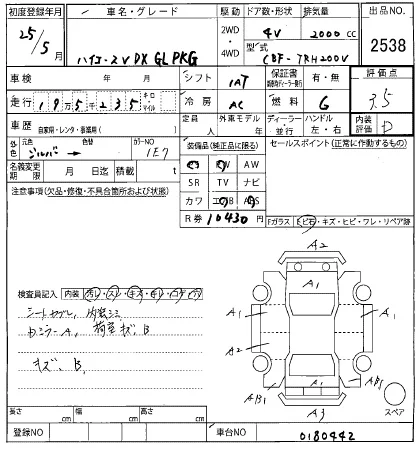 初度登録年月 車名・グレード 駆動 ドア数・形状 排気量 出品NO.
25/5 ハイエースV DX GL PKG 2WD・4WD 4V 2000 CC 2538
型式 CBF-TRH200V
車検 年 月 シフト 1AT 保証書 有・無 評価点
走行 19万5千235 キロ・マイル 冷房 AC 燃料 G 3.5
車歴 自家用・レンタ・事業用( ) 定員 人 外車モデル 年 ディーラー・並行 ハンドル 左・右 内装評価 D
外色 元色 シルバー → 色替 カラーNO 1E7 装備品(純正品に限る) セールスポイント(正常に作動するもの)
名義変更期限 月 日迄 積載 t PW AW
注意事項(欠品・修復・不具合箇所および状態) SR TV ナビ
カワ エアB ABS
R券 10430 円 Fガラス(トビ石・キズ・ヒビ・ワレ・リペア跡)
A2
A1
検査員記入 内装(汚レ・スレ・キズ・キレ・コゲ・穴)
A1 A1
シートヨゴレ, 内装シミ
ルミラーA, 荷室キズB
A2
キズB,
A1
AB1 A3 AB1
スペア
長さ cm 幅 cm 高さ cm
登録NO 車台NO 0180442